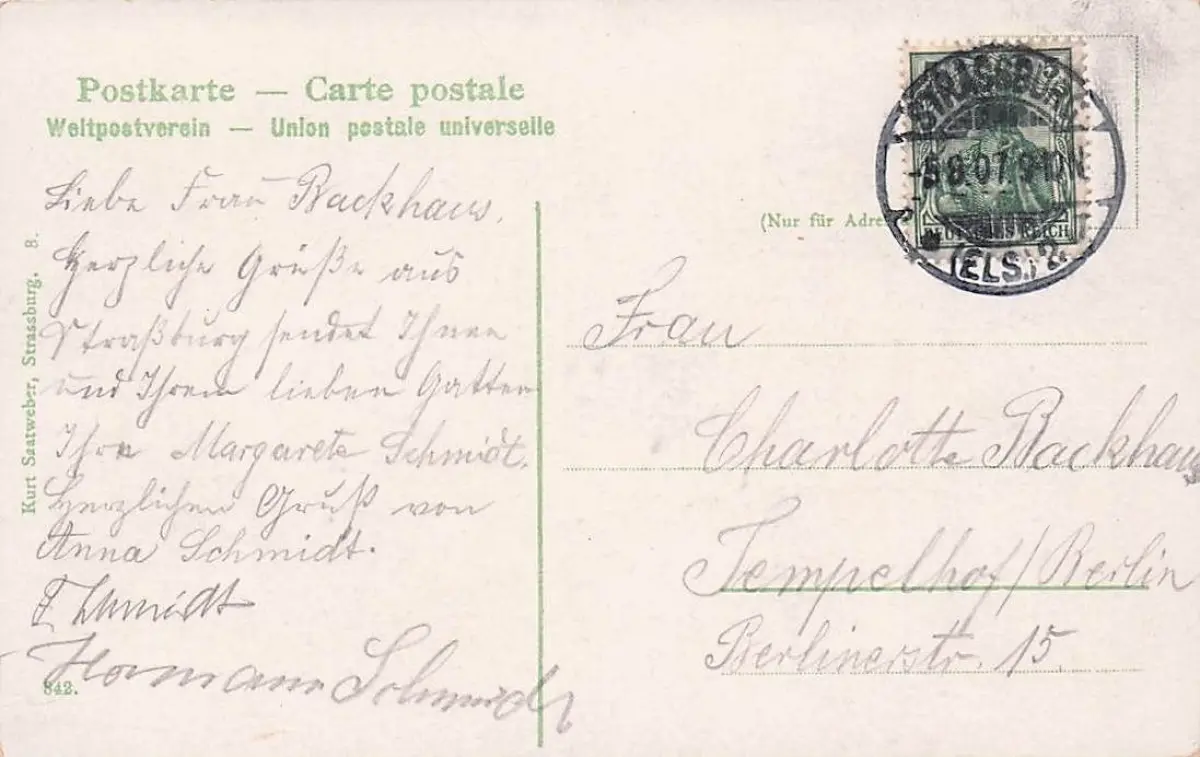 Postkarte — Carte postale
Weltpostverein — Union postale universelle
Liebe Frau Backhaus.
Herzliche Grüße aus
Straßburg sendet Ihnen
und Ihrem lieben Gatten
Ihre Margarete Schmidt.
Herzlichen Gruß von
Anna Schmidt.
Schmidt
Hermann Schmidt
842.
Kurt Saatweber, Strassburg. 8.
STRASSBURG
(ELS.) 2.
DEUTSCHES REICH
(Nur für Adre
Frau
Charlotte Backhaus
Tempelhof/Berlin
Berlinerstr. 15